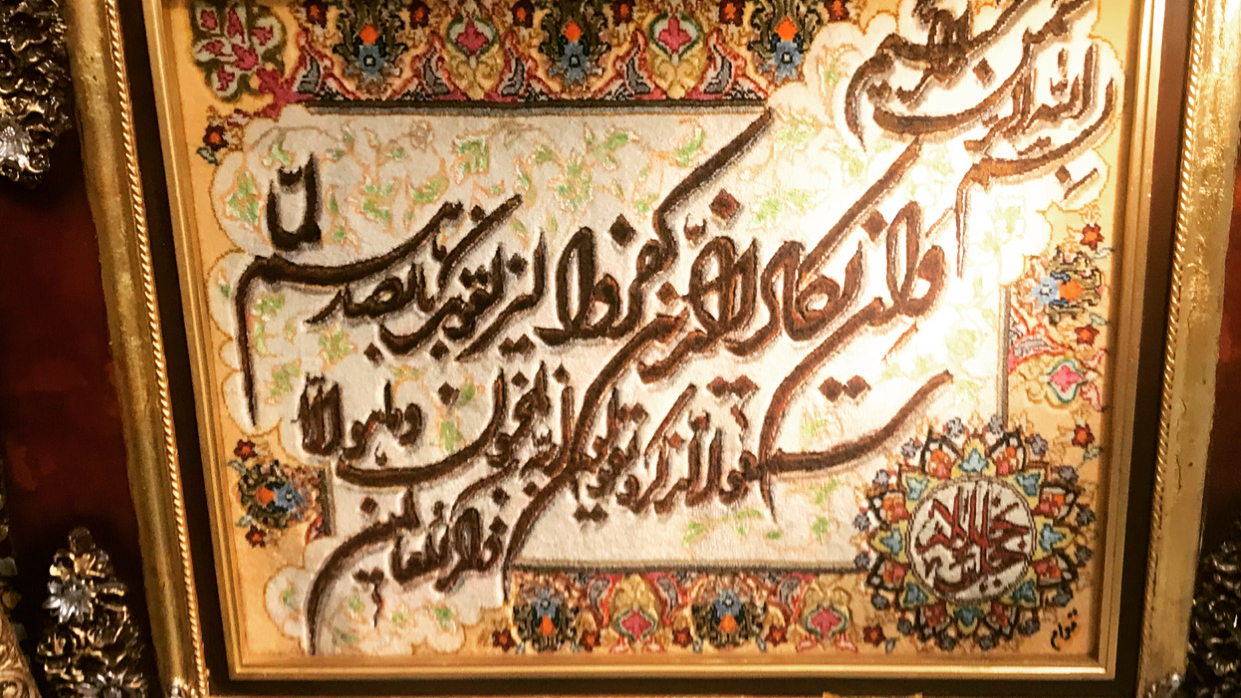 بسم الله الرحمن الرحیم
وان یکاد الذین کفروا لیزلقونک بابصارهم لما
سمعوا الذکر و یقولون انه لمجنون و ما هو الا
ذکر للعالمین
قوام